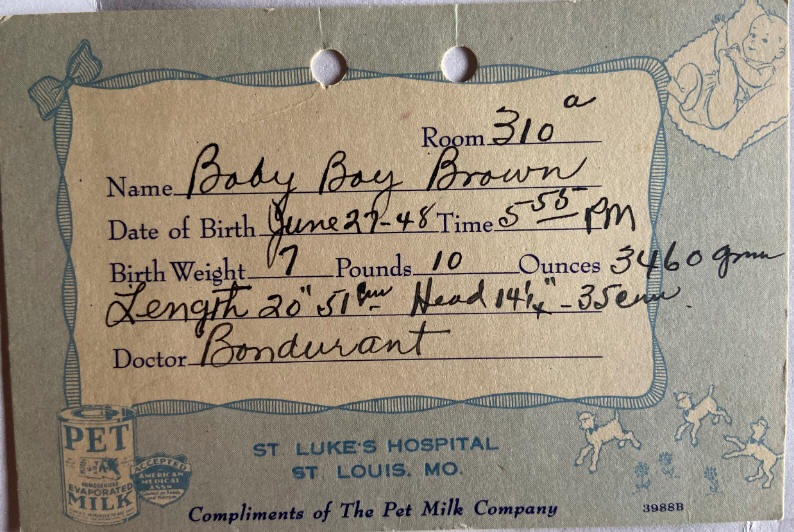 Room 310 a
Name Baby Boy Brown
Date of Birth June 27-48 Time 5 55 PM
Birth Weight 7 Pounds 10 Ounces 3460 gm
Length 20" 51 cm Head 14 1/4" - 35 cm.
Doctor Bondurant
PET
EVAPORATED
MILK
ACCEPTED
AMERICAN
MEDICAL
ASSN
ST. LUKE'S HOSPITAL
ST. LOUIS, MO.
Compliments of The Pet Milk Company
3988B